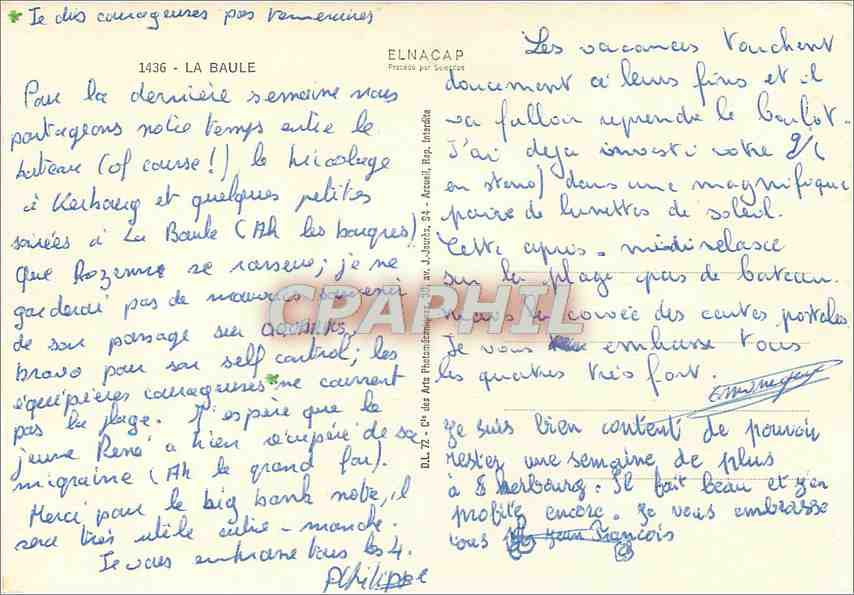 * Je dis courageuses pas temmeraires
1436 - LA BAULE
ELNACAP
Procédé par Selectos
Pour la dernière semaine nous
partageons notre temps entre le
bateau (of course!) le bricolage
à Kerbourg et quelques petites
soirées à La Baule (Ah les barques)
Que Rozenne se rassure; je ne
garderai pas de mauvais souvenir
de son passage sur
bravo pour son self control; les
équipières courageuses* ne courent
pas la plage. J'espère que le
jeune René a bien récupéré de sa
migraine (Ah le grand fou).
Merci pour le big bank note, il
sera très utile outre-manche.
Je vous embrasse tous les 4.
Philippe
D.L. 72 - Cie des Arts Photomécaniques, av. J.-Jaurès, 94 - Arcueil, Rep. Interdite
CPAPHIL
Les vacances touchent
doucement à leurs fins et il
va falloir reprendre le boulot.
J'ai deja investi votre
dans une magnifique
paire de lunettes de soleil.
Cette après-midi relaxe
sur la plage pas de bateau.
Mais la corvée des cartes postales
Je vous embrasse tous
les quatres très fort.
Je suis bien content de pouvoir
rester une semaine de plus
à Kerbourg. Il fait beau et j'en
profite encore. Je vous embrasse
tous Jean François